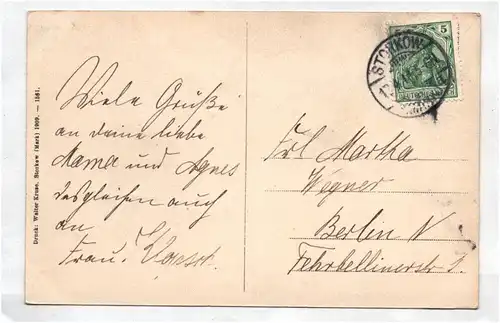 Druck: Walter Kruse, Storkow (Mark) 1909. — 1581.
Viele Grüße
an deine liebe
Mama und Agnes
desgleichen auch
an
Frau.
STORKOW
5
Frl Martha
Wegner
Berlin N
Fehrbellinerstr 1.